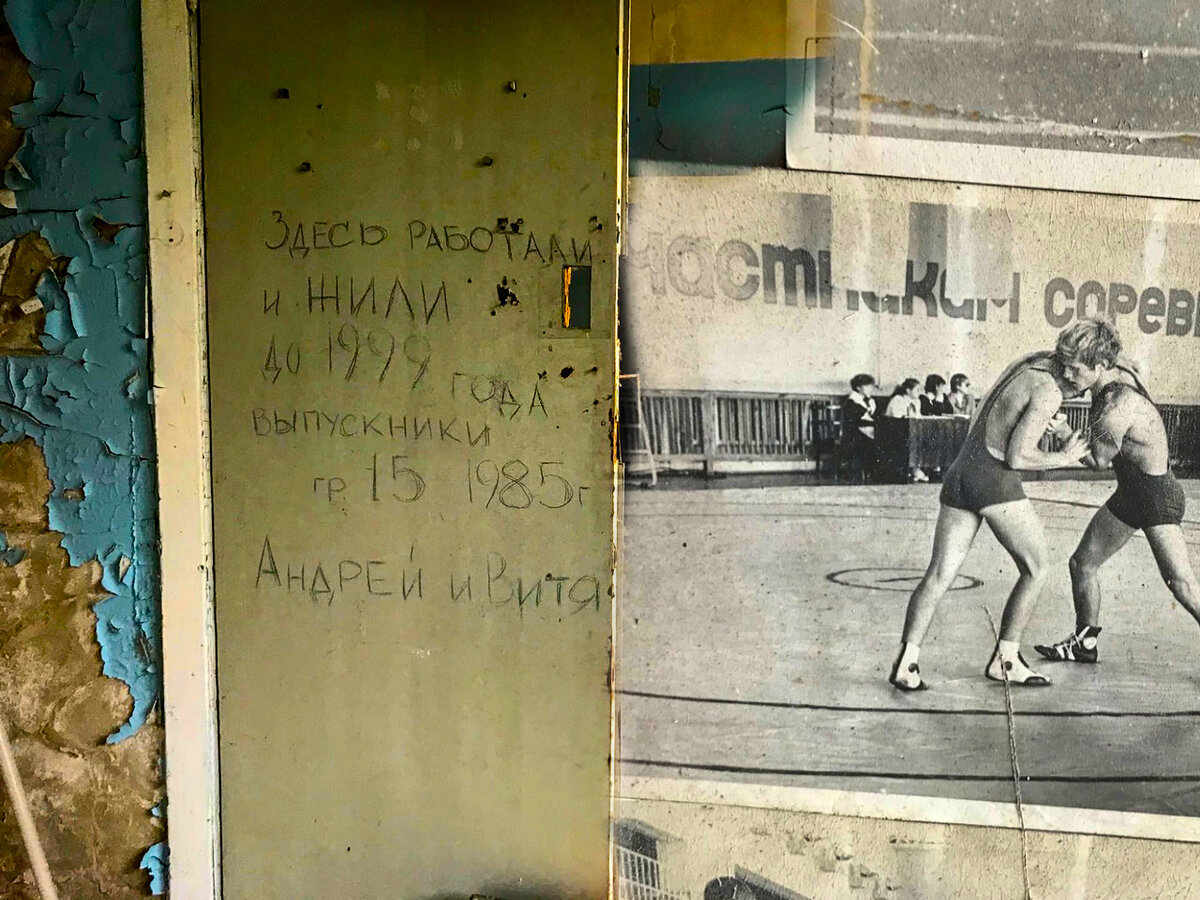 Здесь работали
и жили
до 1999 года
выпускники
гр 15 1985г
Андрей и Витя
частникам сорев